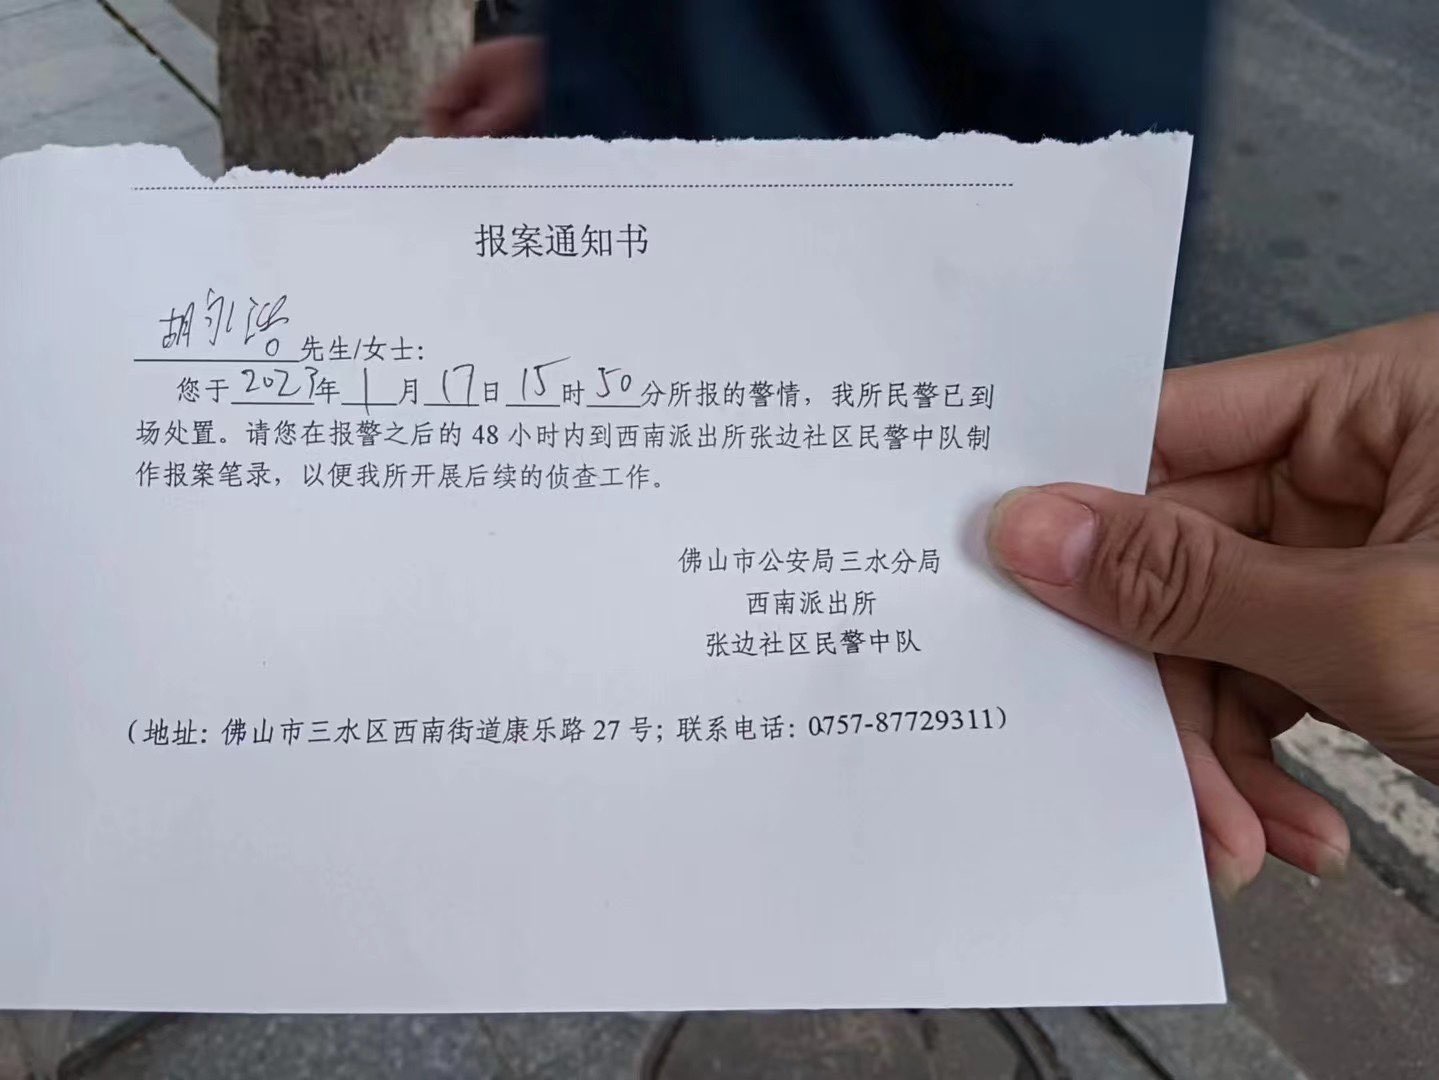 报案通知书
胡家浩 先生/女士：
您于2023年1月17日15时50分所报的警情，我所民警已到
场处置。请您在报警之后的 48 小时内到西南派出所张边社区民警中队制
作报案笔录，以便我所开展后续的侦查工作。
佛山市公安局三水分局
西南派出所
张边社区民警中队
（地址：佛山市三水区西南街道康乐路 27 号；联系电话：0757-87729311）